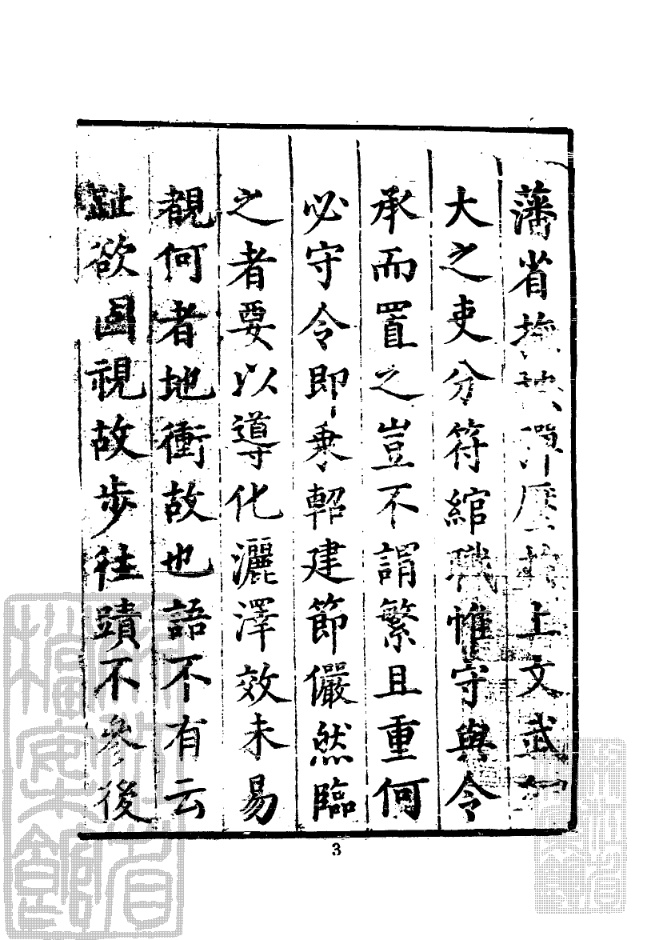 藩省撫彈壓土文武細
大之吏分符綰職惟守與令
承而置之豈不謂繁且重何
必守令即秉軺建節儼然臨
之者要以導化灑澤效未易
覩何者地衝故也語不有云
趾欲固視故步往蹟不參後
3